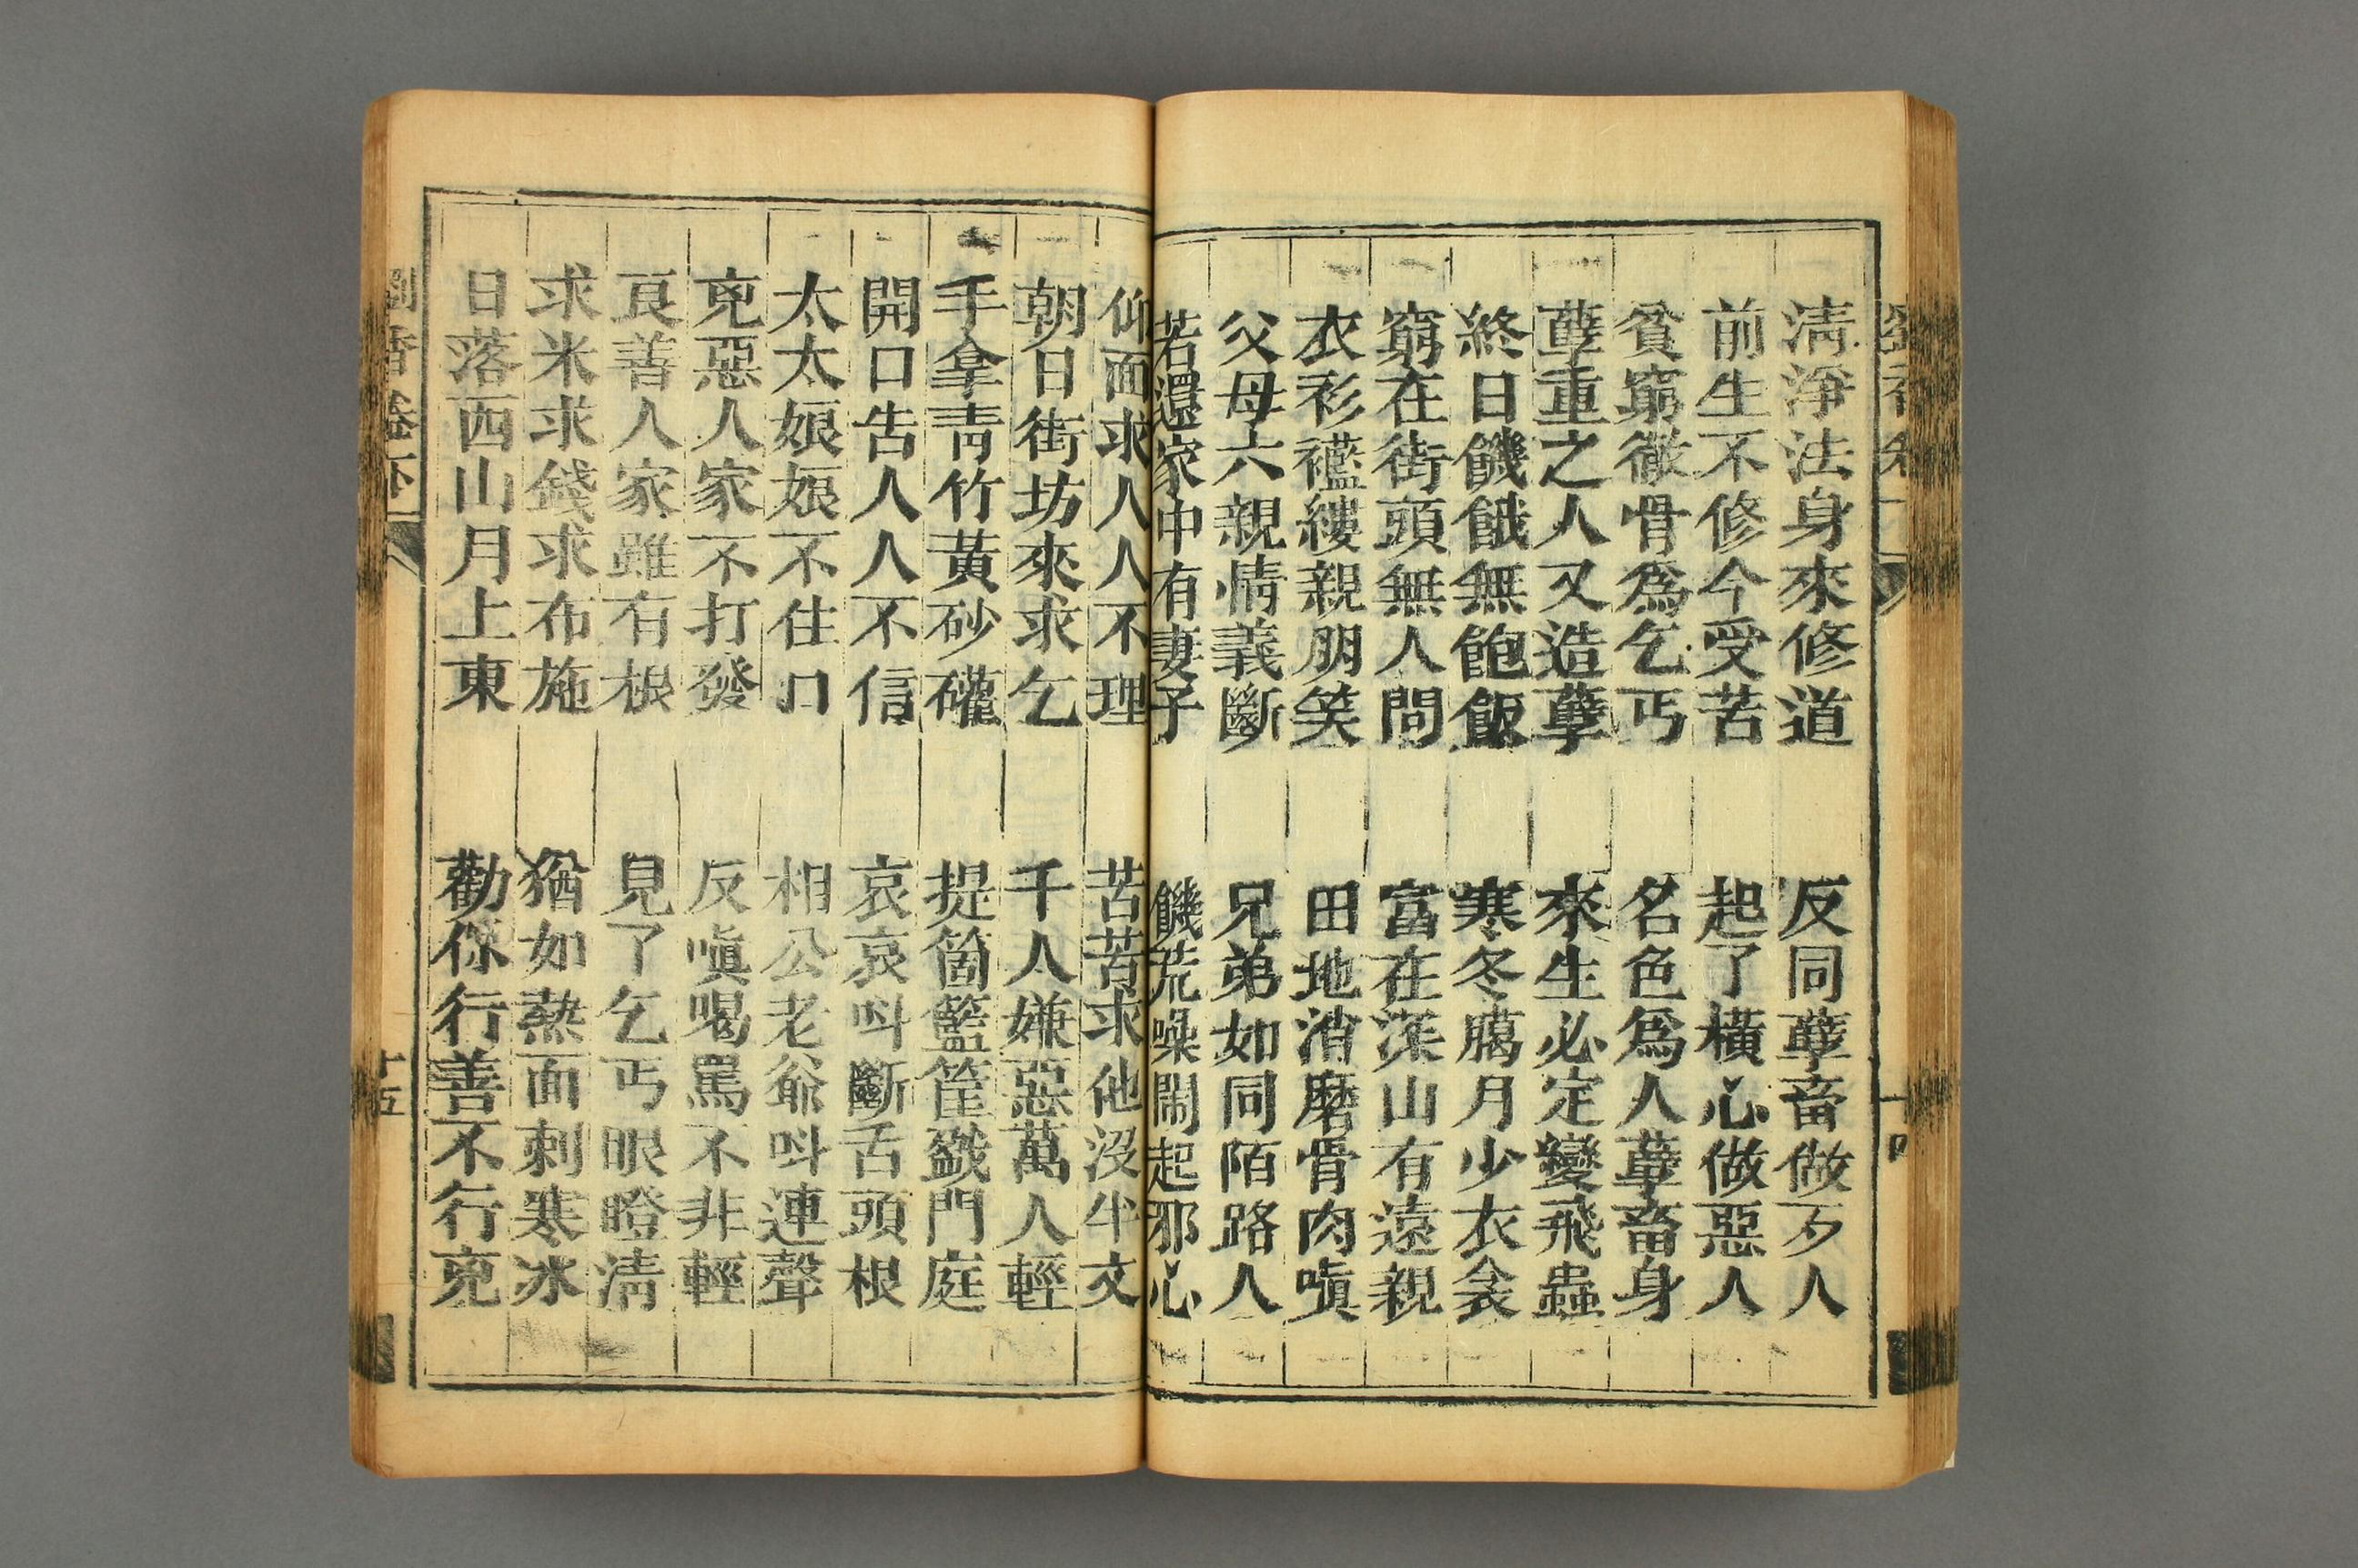 清淨法身來修道　反同孽畜做歹人
前生不修今受苦　起了橫心做惡人
貧窮徹骨爲乞丐　名色爲人孽畜身
孽重之人又造孽　來生必定變飛蟲
終日饑餓無飽飯　寒冬臈月少衣衾
窮在街頭無人問　富在深山有遠親
衣衫襤縷親朋笑　田地消磨骨肉嗔
父母六親情義斷　兄弟如同陌路人
若還家中有妻子　饑荒噪鬧起邪心
仰面求人人不理　苦苦求他沒半文
朝日街坊來求乞　千人嫌惡萬人輕
手拿靑竹黃砂礶　提箇籃筐到門庭
開口告人人不信　哀哀呌斷舌頭根
太太娘娘不住口　相公老爺呌連聲
兇惡人家不打發　反嗔喝罵不非輕
良善人家雖有根　見了乞丐眼瞪清
求米求錢求布施　猶如熱面刺寒冰
日落西山月上東　勸你行善不行兇
劉香卷下
十五